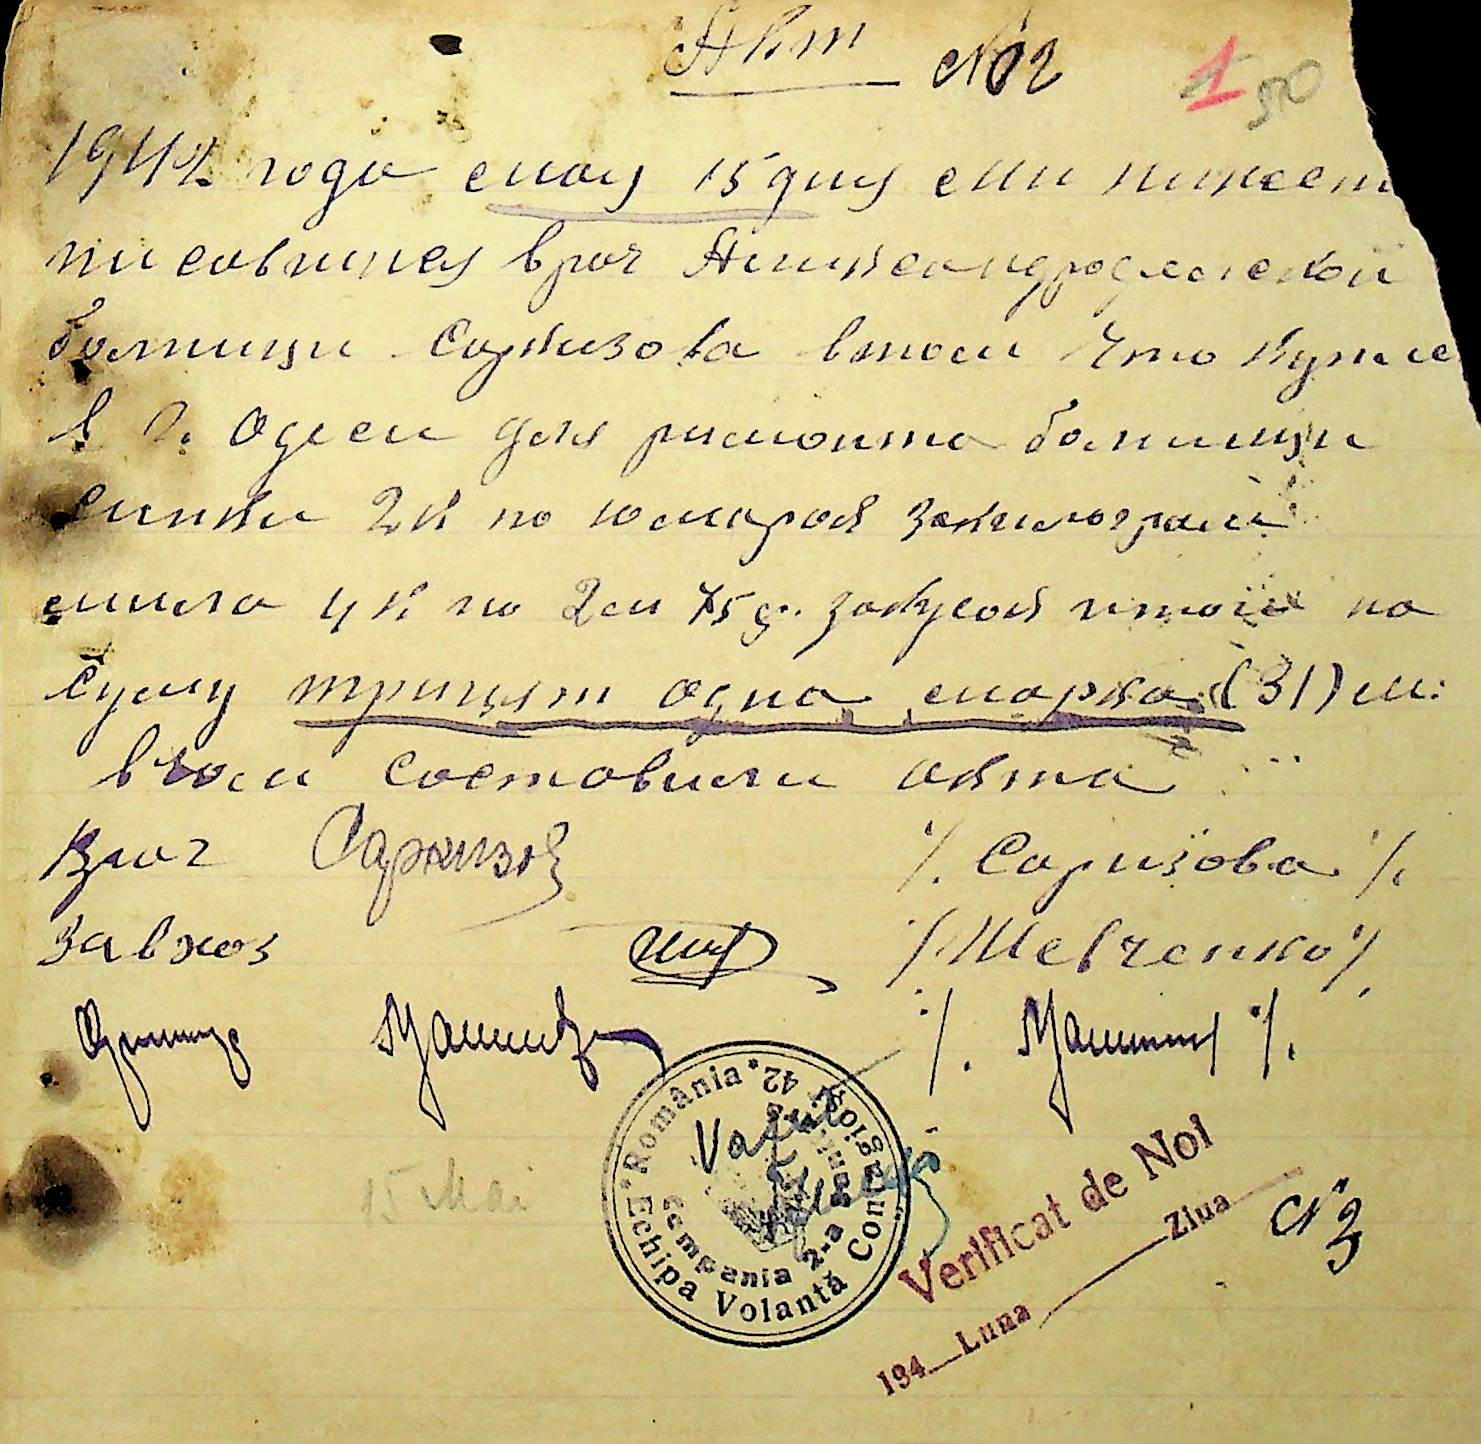 Акт №2
1 50
1942 года мая 15 дня мы нижест
писовшися врач Александродарской
больници Саркизова втом что купле
в г. Одеси для римонта больници
синки 2к по 10 марок закилограм
мила 4к по 2м 75 ф. закусок итого на
суму трицят одна марка (31) м:
вчом составили акта
Врач Саркизов /. Саркизова /.
Завхоз /. Шевченко /.
/. /.
15 Mai
România 42
Echipa Volantă
Compania 2-a
Verificat de Noi
194 Luna Ziua
№3